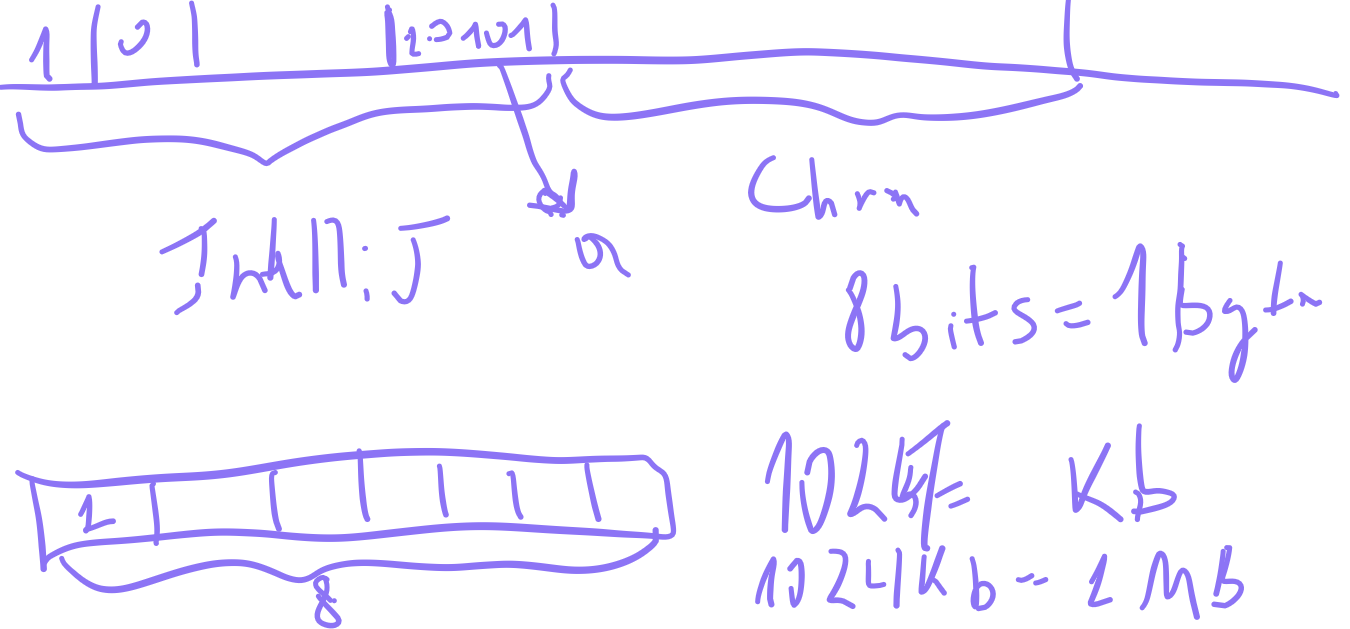 1 | 0 | | 10101 |
IntelliJ
Chrm
a
8 bits = 1 byte
1024 = Kb
1
1024 Kb = 1 MB
8